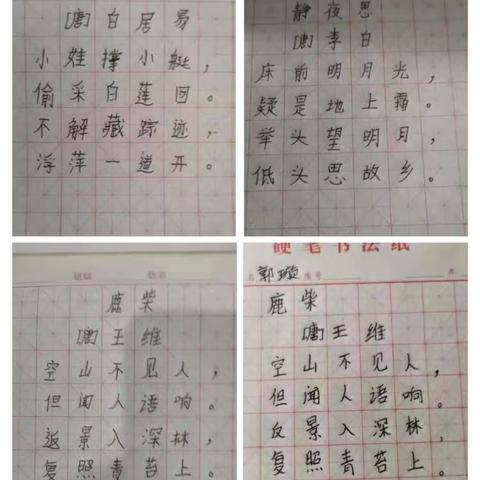 [唐]白居易
小娃撑小艇，
偷采白莲回。
不解藏踪迹，
浮萍一道开。
静夜思
[唐]李白
床前明月光，
疑是地上霜。
举头望明月，
低头思故乡。
鹿柴
[唐]王维
空山不见人，
但闻人语响。
返景入深林，
复照青苔上。
硬笔书法纸
名 郭璇 座号 年
鹿柴
[唐]王维
空山不见人，
但闻人语响。
反景入深林，
复照青苔上。